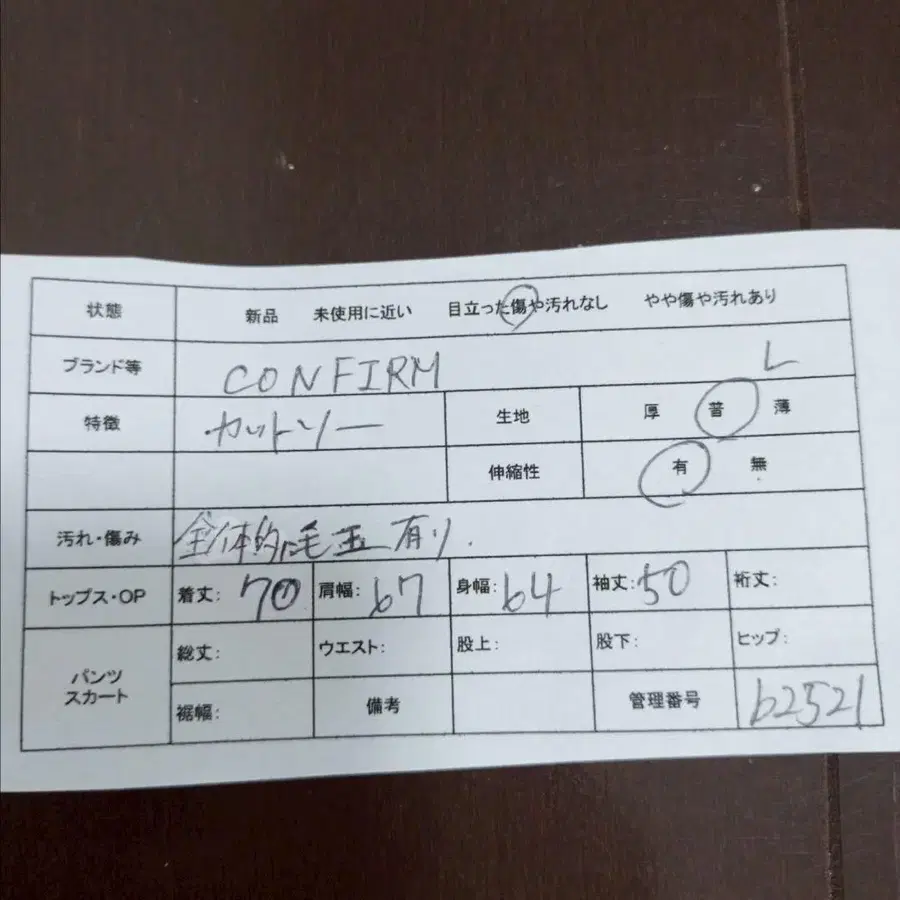 状態 新品 未使用に近い 目立った傷や汚れなし やや傷や汚れあり
ブランド等 CONFIRM L
特徴 カットソー 生地 厚 普 薄
伸縮性 有 無
汚れ・傷み 全体的に毛玉有り.
トップス・OP 着丈: 70 肩幅: 67 身幅: 64 袖丈: 50 裄丈:
パンツ
スカート
総丈: ウエスト: 股上: 股下: ヒップ:
裾幅: 備考 管理番号 62521